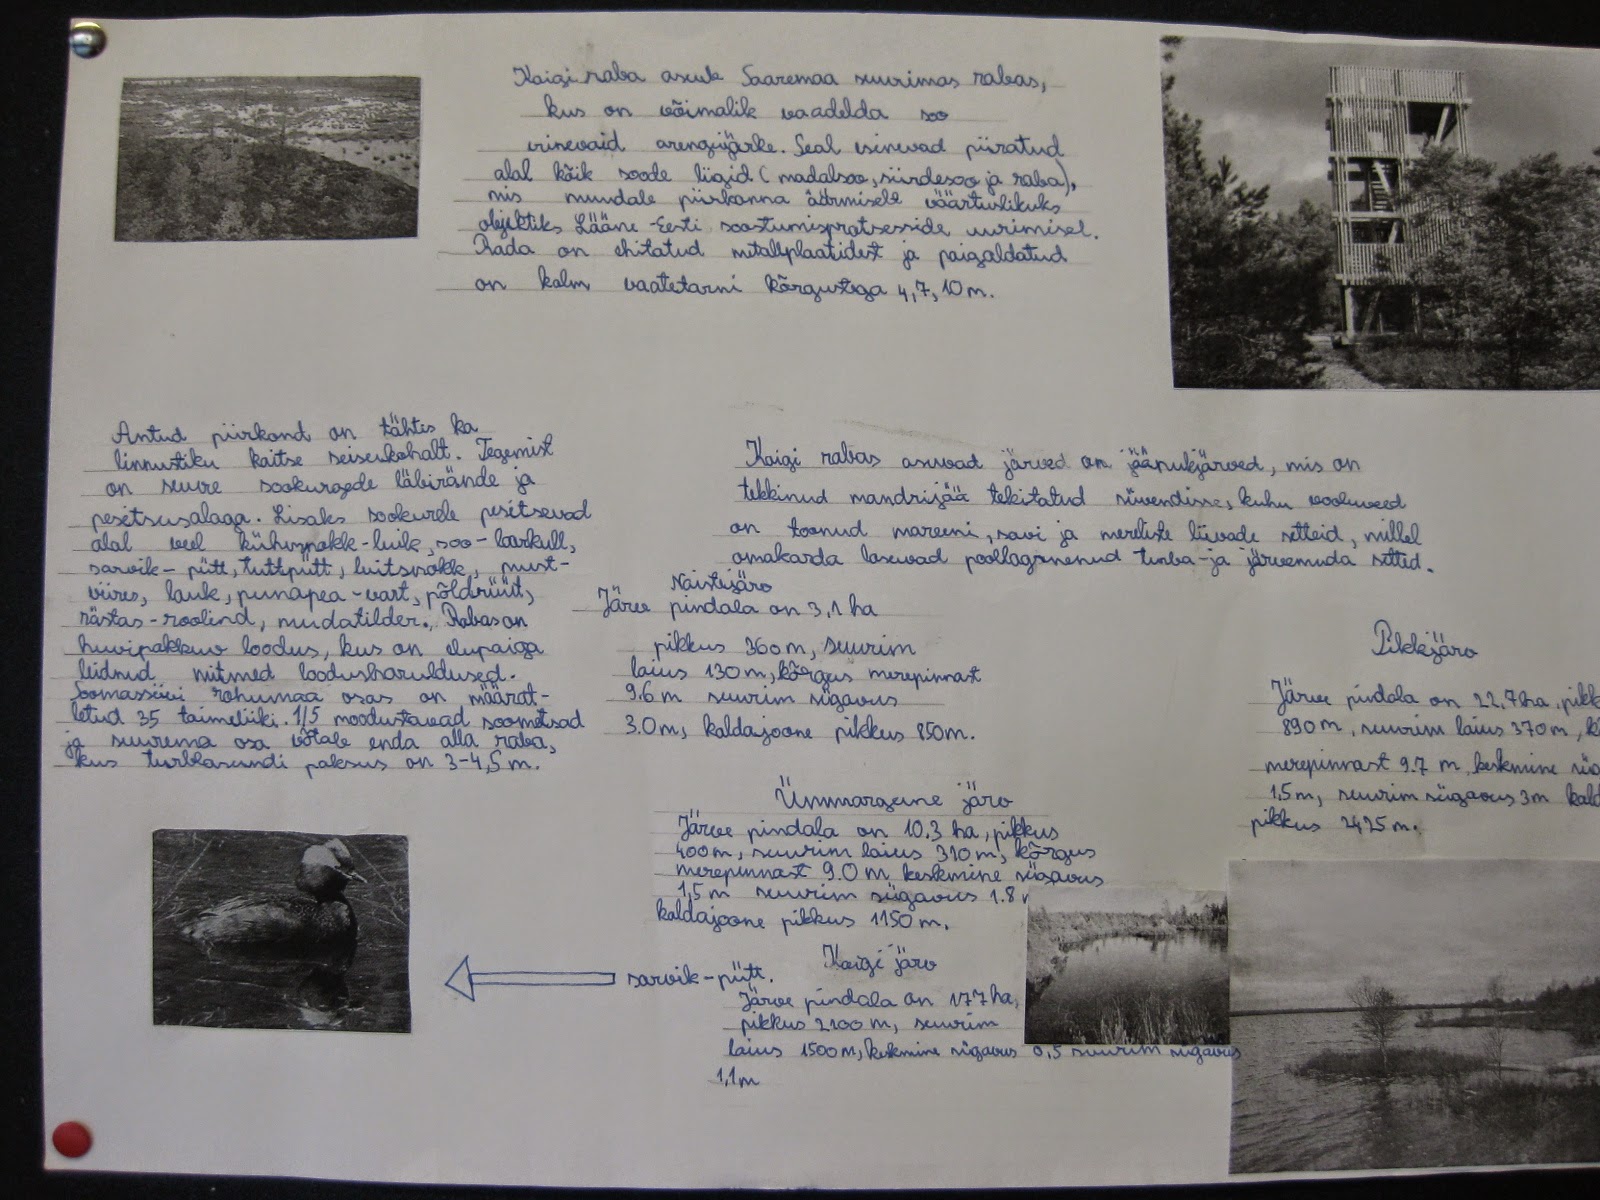 Koigi raba asub Saaremaa suurimas rabas,
kus on võimalik vaadelda soo
erinevaid arengujärke. Seal esinevad piiratud
alal kõik soode liigid (madalsoo, siirdesoo ja raba),
mis muudale piirkonna äärmiselt väärtuslikuks
objektiks Lääne-Eesti soostumisprotsesside uurimisel.
Rada on ehitatud metallplaatidest ja paigaldatud
on kolm vaatetorni kõrgustega 4, 7, 10 m.
Antud piirkond on tähtis ka
linnustiku kaitse seisukohalt. Tegemist
on suure sookurgede läbirände ja
pesitsusalaga. Lisaks sookurele pesitsevad
alal veel kühmnokk-luik, soo-loorkull,
sarvik-pütt, tuttpütt, luitsnokk, must-
viires, lauk, punapea-vart, põldrüüt,
rästas-roolind, mudatilder. Rabas on
huvipakkuv loodus, kus on elupaiga
leidnud mitmed loodusharuldused.
Soomassiivi rohumaa osas on määrat-
letud 35 taimeliiki. 1/5 moodustavad soometsad
ja suurema osa võtab enda alla raba,
kus turbalasundi paksus on 3-4,5 m.
Koigi rabas asuvad järved on jäänukjärved, mis on
tekkinud mandrijää tekitatud süvendisse, kuhu vooluveed
on toonud moreeni, savi ja mereliste liivade setteid, millel
omakorda lasuvad poollagunenud turba-ja järvemuda setted.
Naistejärv
Järve pindala on 3,1 ha
pikkus 360 m, suurim
laius 130 m, kõrgus merepinnast
9.6 m suurim sügavus
3.0 m, kaldajoone pikkus 850 m.
Pikkjärv
Järve pindala on 22,7 ha, pikk
890 m, suurim laius 370 m, k
merepinnast 9.7 m, keskmine süg
1,5 m, suurim sügavus 3m kald
pikkus 2425 m.
Ümmargune järv
Järve pindala on 10.3 ha, pikkus
400 m, suurim laius 310 m, kõrgus
merepinnast 9.0 m keskmine sügavus
1,5 m suurim sügavus 1.8
kaldajoone pikkus 1150 m.
sarvik-pütt.
Koigi järv
Järve pindala on 177 ha,
pikkus 2100 m, suurim
laius 1500 m, keskmine sügavus 0,5 suurim sügavus
1,1 m